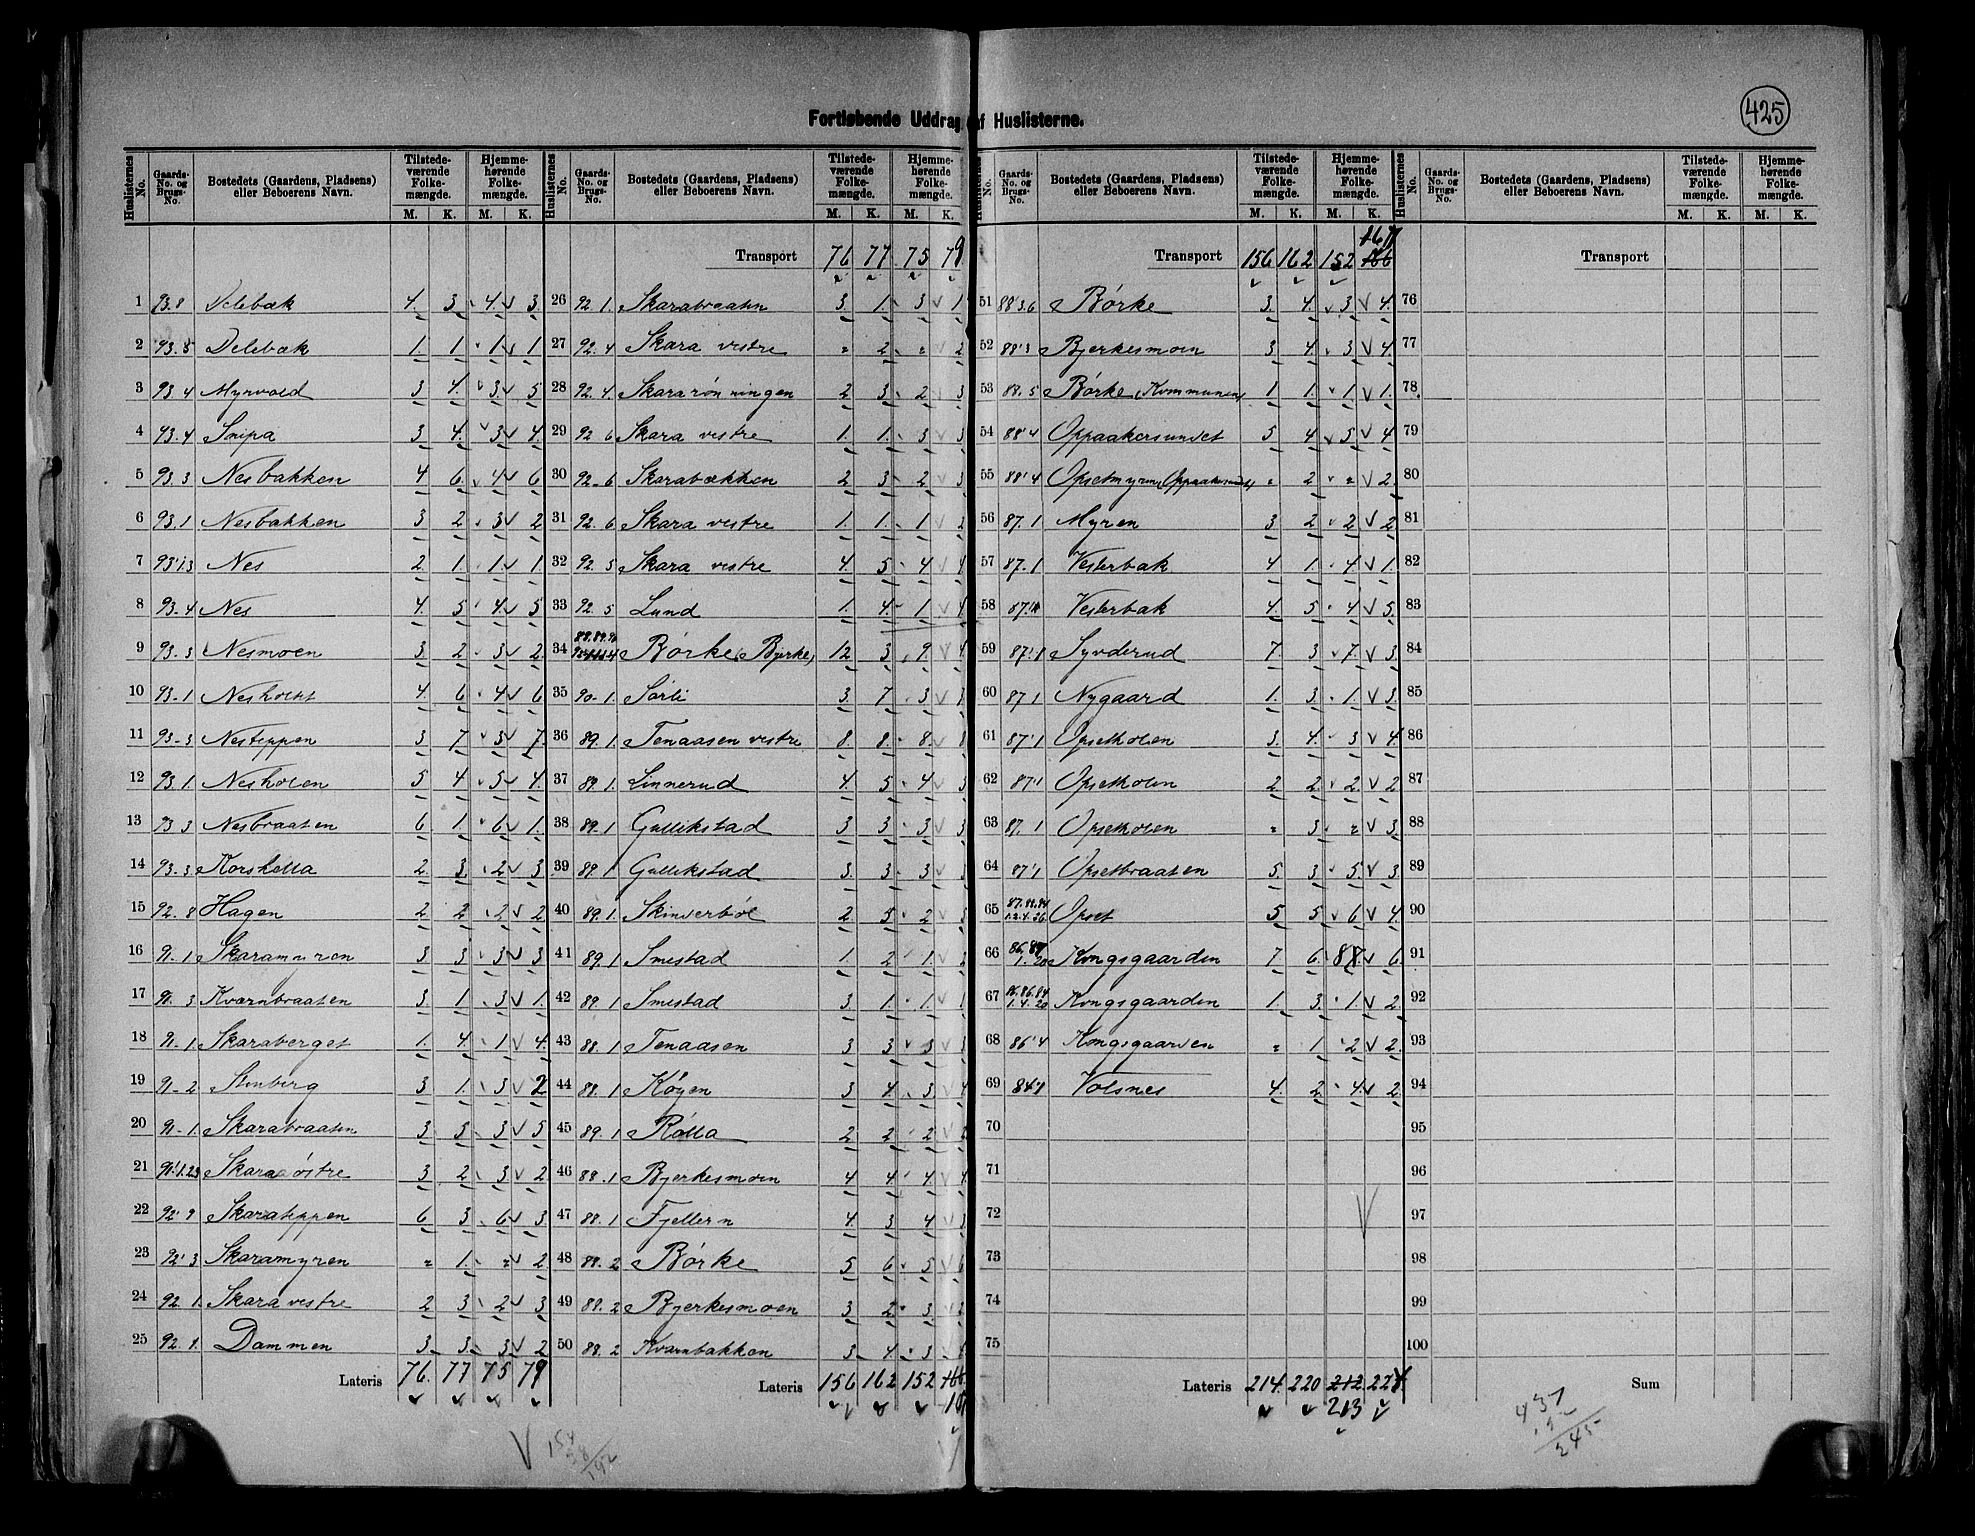 425
Fortløbende Uddrag af Huslisterne.
Huslisternes No. Gaards-No. og Brugs-No. Bostedets (Gaardens, Pladsens) eller Beboerens Navn. Tilstedeværende Folkemængde. M. K. Hjemmehørende Folkemængde. M. K.
Transport 76 77 75 79
Transport 156 162 152 167 166
Transport
1 93.8 Delebæk 4. 3. 4. 3.
2 93.5 Delebæk 1. 1 1 1
3 93.4 Myrvold 3 4. 3. 5
4 93.4 Snipa 3 4. 3 4.
5 93.3 Nesbakken 4 6. 4 6
6 93.1 Nesbakken 3 2 3 2
7 93.1.3 Nes 2 1. 1 1
8 93.4 Nes 4. 5 4. 5
9 93.3 Nesmoen 3 2 3 2
10 93.1 Nesholtet 4. 6 4 6
11 93.3 Nesteppen 3 7 3 7.
12 93.1. Nesholen 5 4 5 4.
13 93.3 Nesbraaten 6 1. 6 1.
14 93.3 Korshella 2 3 2 3
15 92.8 Hagen 2 2 2 2
16 91.1 Skaramyren 3 3 3 3
17 91.3 Kvarnbraaten 3. 1 3 1.
18 91.1 Skaraberget 1. 4. 1 4.
19 91.2 Stenberg 3 1. 3 2
20 91.1 Skarabraaten 3 3 3 5
21 91.1.23 Skara østre 3 2 3 2
22 92.9 Skarateppen 6 3 6 3
23 92.3 Skaramyren " 1. " 2
24 92.1. Skara vestre 2 3 2 3
25 92.1. Dammen 3 3 3 2
Lateris 76. 77 75 79
26 92.1. Skarabraaten 3 1. 3 1
27 92.4 Skara vestre " 2 " 2
28 92.4. Skararønningen 2 3 2 3
29 92.6 Skara vestre 1. 1. 3 3
30 92.6 Skarabækken 2 3 2 3
31 92.6 Skara vestre 1. 1. 1 2
32 92.5 Skara vestre 4. 5 4 4
33 92.5 Lund 1. 4 1 4
34 88.89.90 Børke (Bjerke) 12 3 9. 4
35 90.1. Sørli 3. 7 3 3
36 89.1. Tenaasen vestre 8. 8. 8. 8
37 89.1. Linnerud 4. 5 4 3
38 89.1 Gullikstad 3 3 3 3
39 89.1 Gullikstad 3. 3 3 3
40 89.1. Skinderbøl 2 5 2 3
41 89.1 Smestad 1. 2 1
42 89.1 Smestad 3 1 1 1
43 88.1 Tenaasen 3 3 3 3
44 88.1 Køyen 3 4 3 4
45 89.1 Rølla 2 2 2 2
46 88.1 Bjerkesmoen 4 4 4 4
47 88.1 Fjellern 4. 3 4 3
48 88.2 Børke 5 6 5 6
49 88.2 Bjerkesmoen 3 2 3 2
50 88.2 Kvarnbakken 3 4. 3 4
Lateris 156 162 152 166
51 88.3.6 Børke 3. 4. 3 4.
52 88.3 Bjerkesmoen 3 4. 3 4.
53 88.5 Børke (Kommunen) 1 1 1. 1.
54 88.4 Oppaakersundet 5 4 5 4
55 88.4 Opsetmyren (Oppaakersundet) " 2 " 2
56 87.1 Myren 3 2 2 2
57 87.1 Vesterbak 4 1 4 1.
58 87.1 Vesterbak 4. 5 4 5.
59 87.1 Synderud 7. 3 7. 3
60 87.1 Nygaard 1. 3 1. 3.
61 87.1 Opsetholen 3. 4. 3 4.
62 87.1 Opsetholen 2 2. 2. 2
63 87.1 Opsetholen " 3 " 3.
64 87.1 Opsetbraaten 5. 3 5. 3.
65 87.88.84 1.2.4.26 Opset 5 5 6 4.
66 86.84 1.20 Kongsgaarden 7. 6. 8 6
67 86.86.84 1.4.20 Kongsgaarden 1. 3 1. 2.
68 86.4 Kongsgaarden " 1 2 2.
69 84.1 Volsnes 4. 2 4. 2.
70
71
72
73
74
75
Lateris 214. 220 212. 221
213
76
77
78
79
80
81
82
83
84
85
86
87
88
89
90
91
92
93
94
95
96
97
98
99
100
Sum
154
38
192
437
245